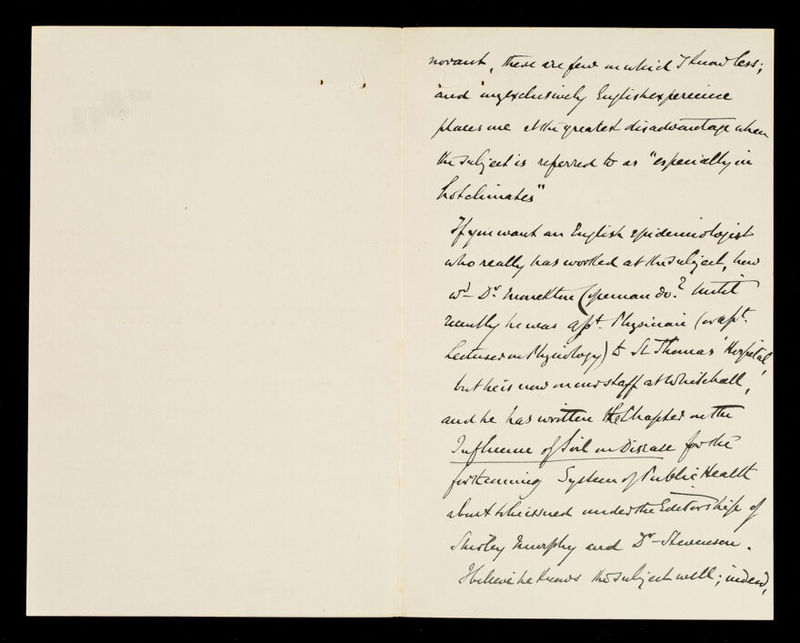 norant, there are few on which I know less;
and my exclusively English experience
places me at the greatest disadvantage when
the subject is referred to as "especially in
hot climates"
If you want an English epidemiologist
who really has worked at the subject, how
wd. Dr. Monckton Copeman do? Until
recently he was asst. Physician (or asst.
Lecturer on Physiology) to St Thomas' Hospital,
but he is now on our staff at Whitehall,
and he has written the Chapter on the
Influence of Soil on Disease for the
forthcoming System of Public Health
about to be issued under the Editorship of
Shirley Murphy and Dr. Stevenson.
I believe he knows the subject well; indeed,